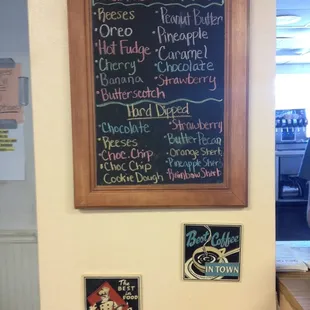 Reeses
Oreo
Hot Fudge
Cherry
Banana
Butterscotch
Peanut Butter
Pineapple
Caramel
Chocolate
Strawberry
Hard Dipped
Chocolate
Reeses
Choc. Chip
Choc Chip
Cookie Dough
Strawberry
Butter Pecan
Orange Sherb
Pineapple Sherb
Rainbow Sherb
Best Coffee
IN TOWN
The
BEST IN
FOOD